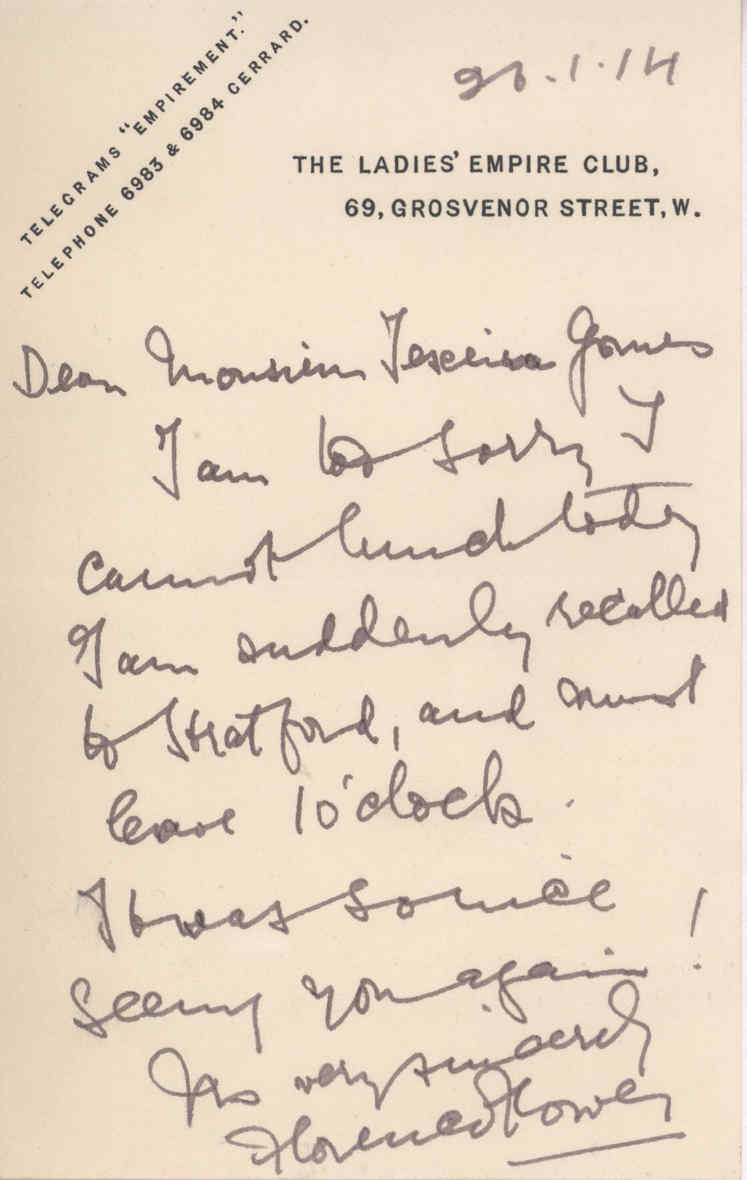 TELEGRAMS "EMPIREMENT."
TELEPHONE 6983 & 6984 GERRARD.
26.1.14
THE LADIES' EMPIRE CLUB,
69, GROSVENOR STREET, W.
Dear Monsieur Teixeira Gomes
I am too sorry I
cannot lunch today
I am suddenly recalled
to Stratford, and must
leave 1 o'clock.
It was so nice
seeing you again!
Yrs very sincerely
Florence Flower